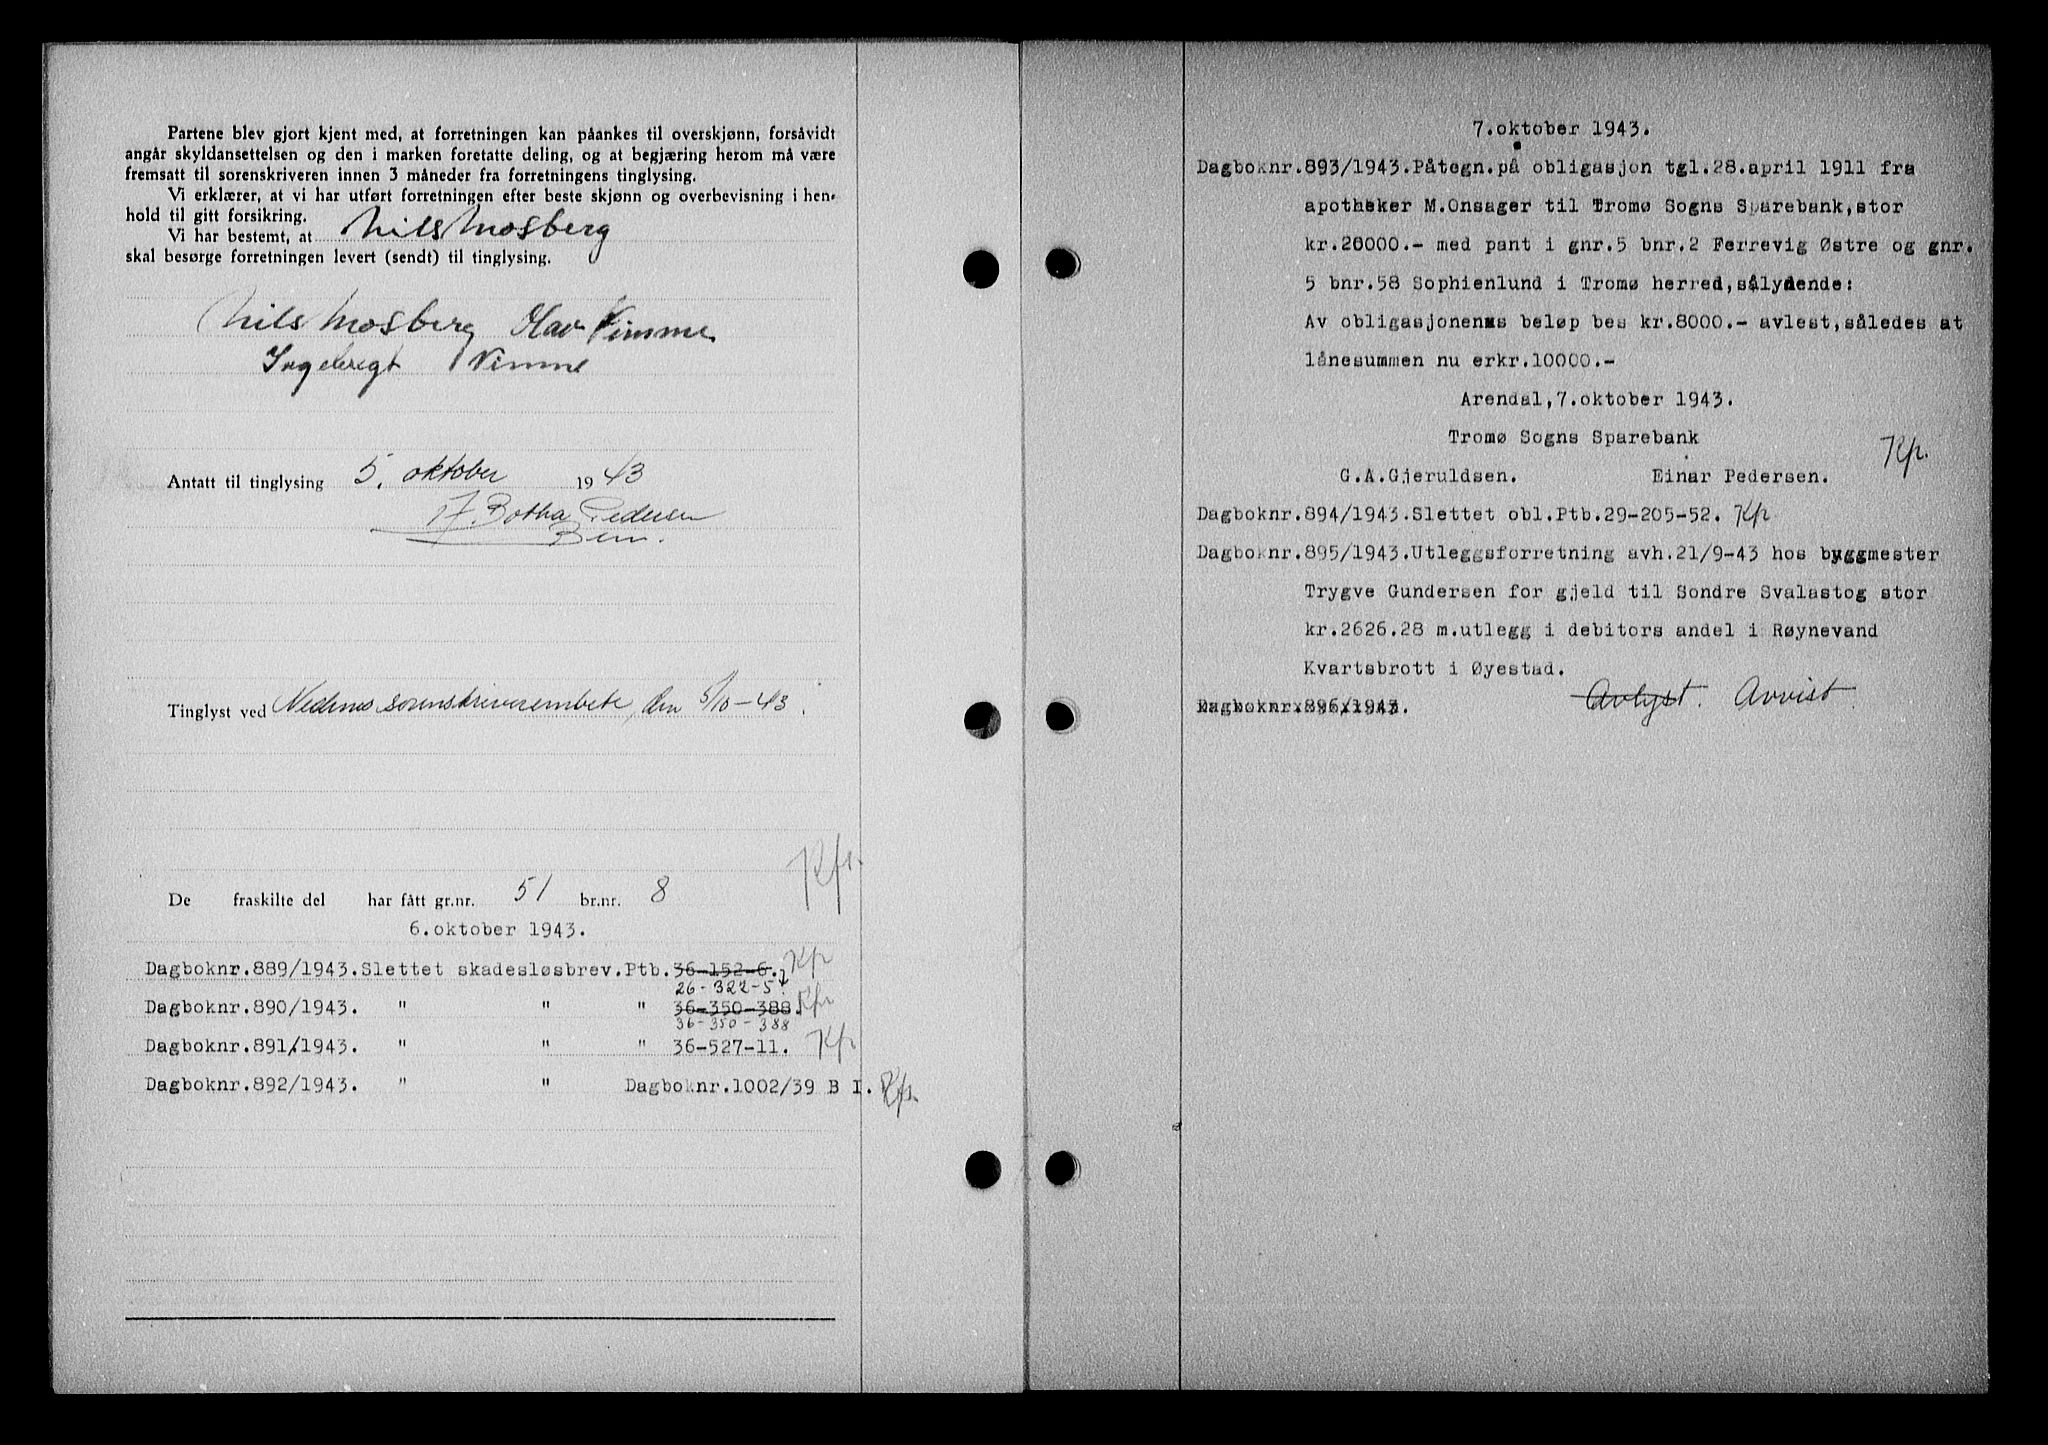 Partene blev gjort kjent med, at forretningen kan påankes til overskjønn, forsåvidt
angår skyldansettelsen og den i marken foretatte deling, og at begjæring herom må være
fremsatt til sorenskriveren innen 3 måneder fra forretningens tinglysing.
Vi erklærer, at vi har utført forretningen efter beste skjønn og overbevisning i hen-
hold til gitt forsikring.
Vi har bestemt, at Nils Mosberg
skal besørge forretningen levert (sendt) til tinglysing.
Nils Mosberg Olav Vimme
Ingebrigt Vimme
Antatt til tinglysing 5. oktober 1943
A. Botha Pedersen
Tinglyst ved Nedenes sorenskriverembete, den 5/10-43.
Kfr.
De fraskilte del har fått gr.nr. 51 br.nr. 8
6.oktober 1943.
Dagboknr.889/1943.Slettet skadesløsbrev.Ptb.36-152-6. Kfr
26-322-51
Dagboknr.890/1943. " " " 36-350-388. Kfr
36-350-388
Dagboknr.891/1943. " " " 36-527-11. Kfr
Dagboknr.892/1943. " " Dagboknr.1002/39 B I. Kfr.
7.oktober 1943.
Dagboknr.893/1943.Påtegn.på obligasjon tgl.28.april 1911 fra
apotheker M.Onsager til Tromø Sogns Sparebank,stor
kr.20000.- med pant i gnr.5 bnr.2 Ferrevig Østre og gnr.
5 bnr.58 Sophienlund i Tromø herred,sålydende:
Av obligasjonens beløp bes kr.8000.- avlest,således at
lånesummen nu erkr.10000.-
Arendal,7.oktober 1943.
Tromø Sogns Sparebank
Kfr.
G.A.Gjeruldsen. Einar Pedersen.
Dagboknr.894/1943.Slettet obl.Ptb.29-205-52. Kfr
Dagboknr.895/1943.Utleggsforretning avh.21/9-43 hos byggmester
Trygve Gundersen for gjeld til Sondre Svalastog stor
kr.2626.28 m.utlegg i debitors andel i Røynevand
Kvartsbrott i Øyestad.
Avlyst. Avvist.
Dagboknr.896/1943.